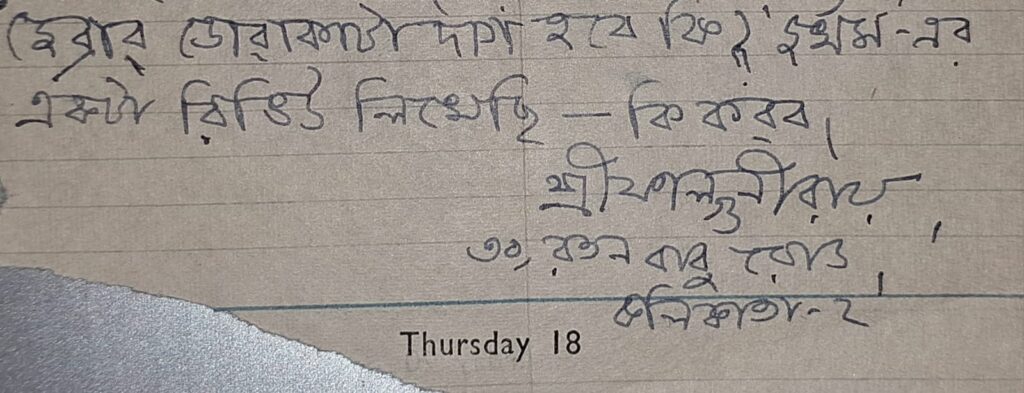 জেব্রার ডোরাকাটা দাগ হবে কি? ইথম-এর
একটা রিভিউ লিখেছি — কি করব।
শ্রীফাল্গুনী রায়
৩০, রতন বাবু রোড,
কলিকাতা-২
Thursday 18